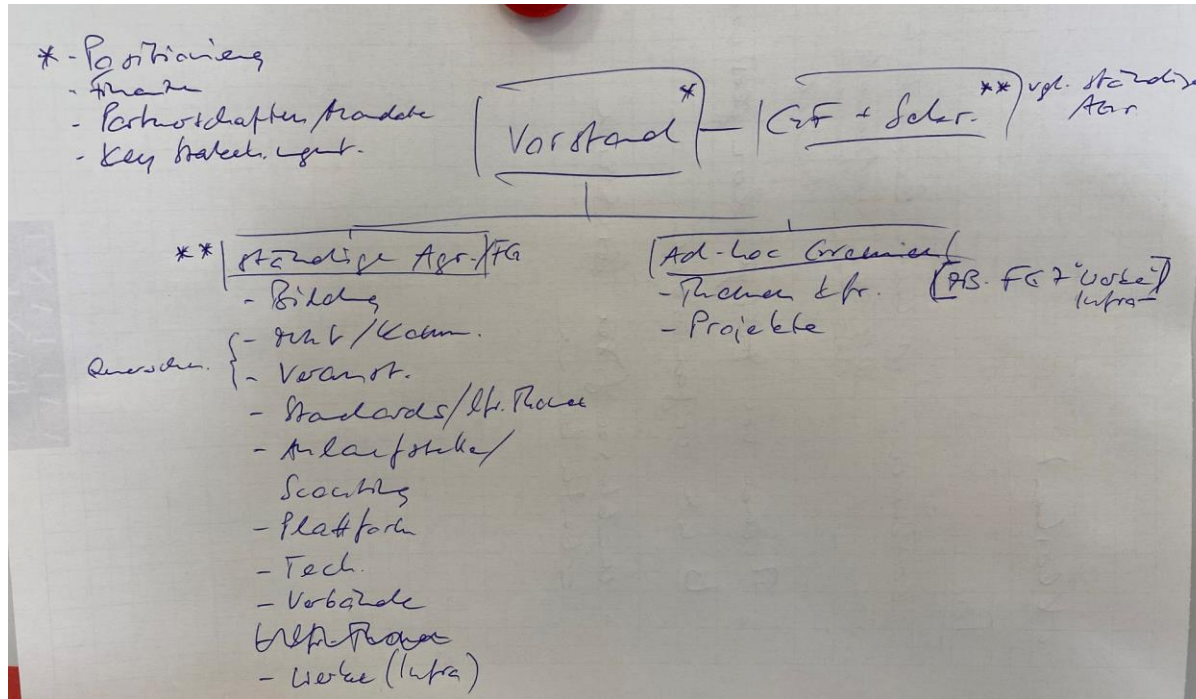 * - Positionierung
- Finanzen
- Partnerschaften/Mandate
- Key Stakeh. mgmt.
Vorstand *
GF + Sekr. **
vgl. ständige
** ständige Agr./FG
- Bildung
- /Komm.
- Veranst.
- Standards/lfr. Themen
- Anlaufstelle/
Scouting
- Plattform
- Tech.
- Verbände
- Werke (Infra)
Ad-hoc Gremien
- Themen kfr.
[zB. FG 7 "Werke"]
Infra
- Projekte